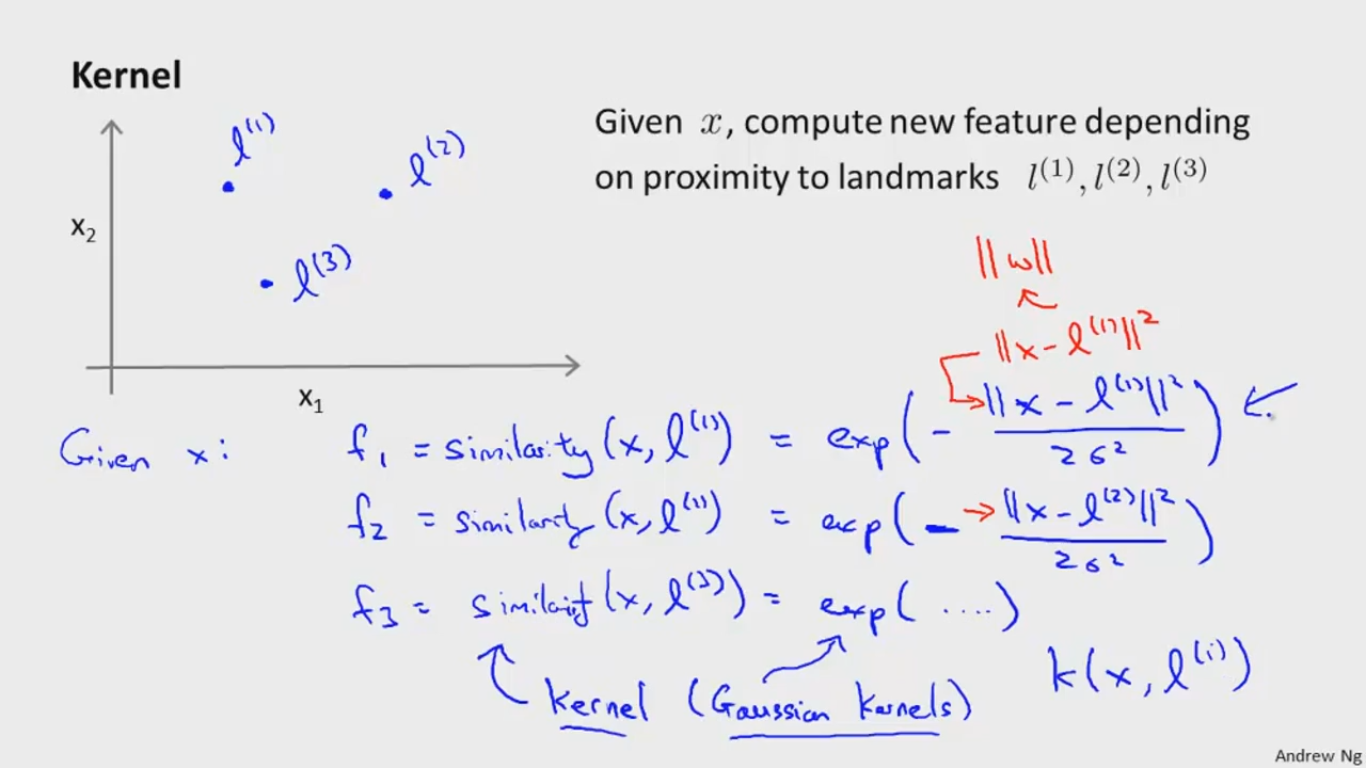 Kernel
Given x, compute new feature depending
on proximity to landmarks l^(1), l^(2), l^(3)
l^(1)
l^(2)
x₂
l^(3)
x₁
||w||
||x - l^(1)||²
Given x: f₁ = similarity(x, l^(1)) = exp(- ||x - l^(1)||² / 2σ²)
f₂ = similarity(x, l^(1)) = exp(- ||x - l^(2)||² / 2σ²)
f₃ = similarity(x, l^(3)) = exp( ....)
kernel (Gaussian kernels) k(x, l^(i))
Andrew Ng